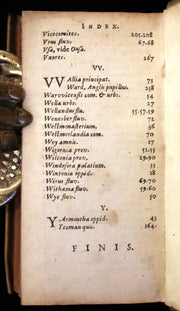 INDEX.
Vicecomites. 205.208
Urus fluv. 67.68
Usa, vide Ousa.
Uxores. 267
VV.
VVAllia principat. 73
Ward, Angli pupillus. 238
Warwicensis com. & urbs. 54
Wella urbs. 27
Wellandus flu. 55.57.59
Wenesber fluv. 72
Westmonasterium. 36
Westmorlandia com. 70
Wey amnis. 17
Wigornia prov. 52.55
Wiltonia prov. 29.90
Windesora palatium. 33
Wintonia oppid. 18
Wirus fluv. 69
Withama fluv. 59.60
Wye fluv. 50
Y.
YArmoutha oppid. 43
Yeoman quo. 264.
FINIS.